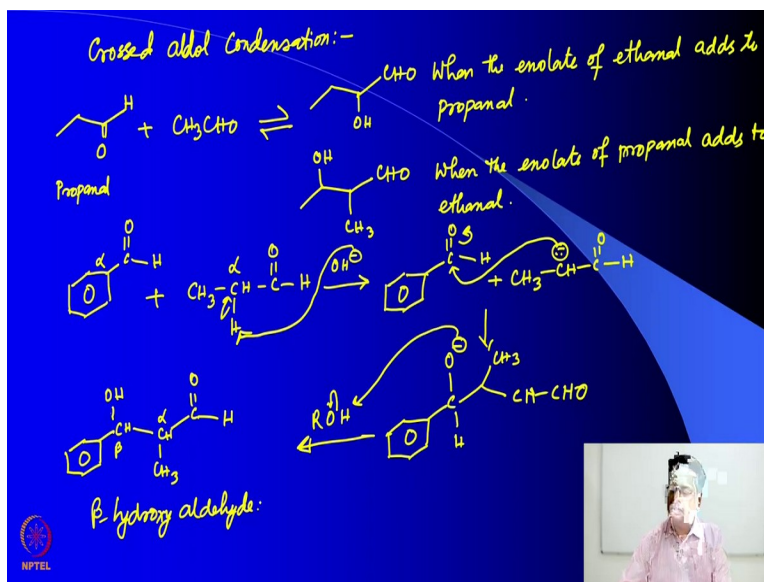 Crossed aldol Condensation:-
CHO When the enolate of ethanal adds to
propanal.
H
O
+ CH3CHO ⇌
OH
Propanal
OH
CHO When the enolate of propanal adds to
ethanal.
CH3
O
α
C-H
+
α O
CH3-CH-C-H
H
OH⊖
O
C-H
+ CH3-CH-C-H
⊖ O
O⊖
CH3
C
CH-CHO
H
ROH
OH
CH
β
α
CH
CH3
O
C-H
β-hydroxy aldehyde:
NPTEL